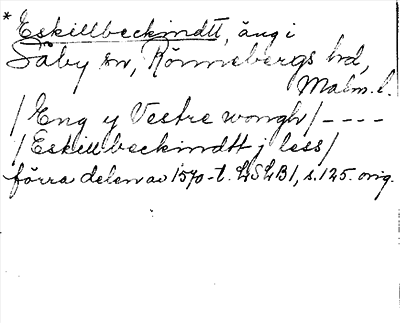 * Eskillbeckindtt, äng i
Säby sn, Rönnebergs hd,
Malm. l.
/ Eng y Vestre wongh / ----
/ Eskillbeckindtt j less /
förra delen av 1570-t. LSLB1, s. 125. orig.